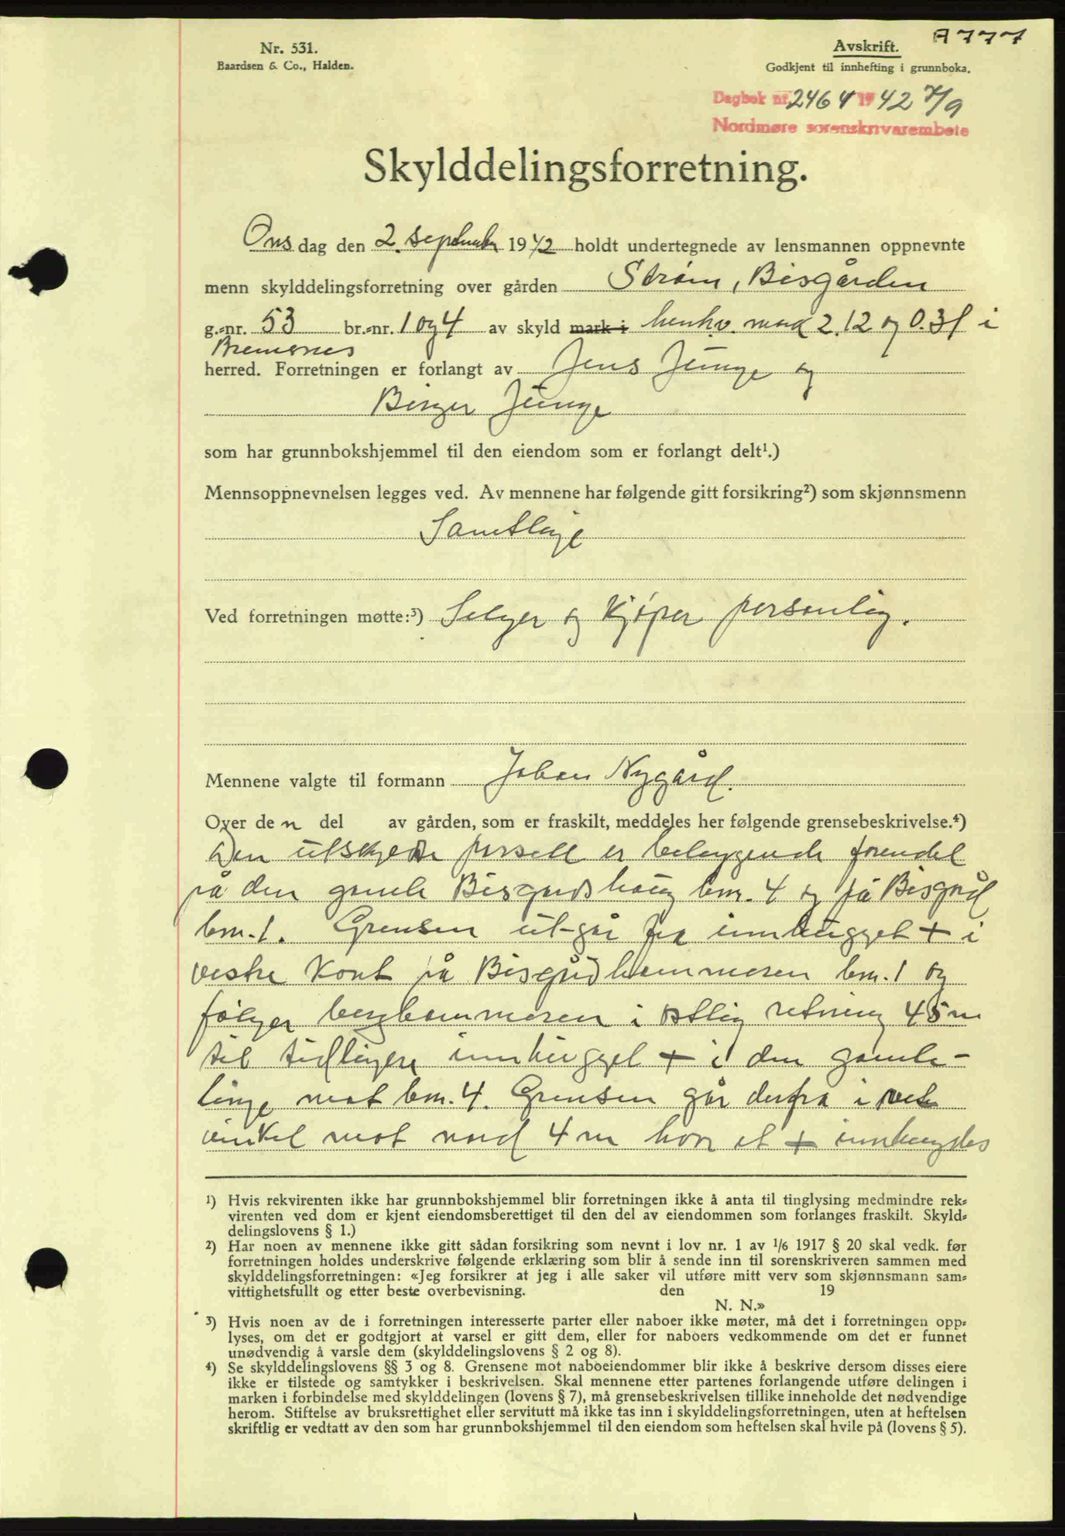 A777
Nr. 531.
Baardsen & Co., Halden.
Avskrift.
Godkjent til innhefting i grunnboka.
Dagbok nr. 2464 1942 7/9
Nordmøre sorenskrivarembete
Skylddelingsforretning.
Onsdag den 2. september 1942 holdt undertegnede av lensmannen oppnevnte
menn skylddelingsforretning over gården Strøm, Bisgården
g.-nr. 53 br.-nr. 1 og 4 av skyld mark i henhv. mark 2.12 og 0.31 i
Bremsnes
herred. Forretningen er forlangt av Jens Junge og
Birger Junge
som har grunnbokshjemmel til den eiendom som er forlangt delt¹.)
Mennsoppnevnelsen legges ved. Av mennene har følgende gitt forsikring²) som skjønnsmenn
Samtlige
Ved forretningen møtte:³) Selger og kjøper personlig.
Mennene valgte til formann Johan Nygård.
Over den del av gården, som er fraskilt, meddeles her følgende grensebeskrivelse.⁴)
Den utskjedte parsell er beliggende forendel
på den gamle Bisgårdshaug bnr. 4 og på Bisgård
bnr. 1. Grensen utgår fra innhugget + i
vestre kant på Bisgårdhammeren bnr. 1 og
følger berghammeren i østlig retning 45 m
til tidligere innhugget + i den gamle
linje mot bnr. 4. Grensen går derfra i rett
vinkel mot nord 4 m hvor et + innhugges
¹) Hvis rekvirenten ikke har grunnbokshjemmel blir forretningen ikke å anta til tinglysing medmindre rek-
virenten ved dom er kjent eiendomsberettiget til den del av eiendommen som forlanges fraskilt. Skyld-
delingslovens § 1.)
²) Har noen av mennene ikke gitt sådan forsikring som nevnt i lov nr. 1 av 1/6 1917 § 20 skal vedk. før
forretningen holdes underskrive følgende erklæring som blir å sende inn til sorenskriveren sammen med
skylddelingsforretningen: «Jeg forsikrer at jeg i alle saker vil utføre mitt verv som skjønnsmann sam-
vittighetsfullt og etter beste overbevisning. den 19
N. N.»
³) Hvis noen av de i forretningen interesserte parter eller naboer ikke møter, må det i forretningen opp-
lyses, om det er godtgjort at varsel er gitt dem, eller for naboers vedkommende om det er funnet
unødvendig å varsle dem (skylddelingslovens § 2 og 8).
⁴) Se skylddelingslovens §§ 3 og 8. Grensene mot naboeiendommer blir ikke å beskrive dersom disses eiere
ikke er tilstede og samtykker i beskrivelsen. Skal mennene etter partenes forlangende utføre delingen i
marken i forbindelse med skylddelingen (lovens § 7), må grensebeskrivelsen tillike inneholde det nødvendige
herom. Stiftelse av bruksrettighet eller servitutt må ikke tas inn i skylddelingsforretningen, uten at heftelsen
skriftlig er vedtatt av den som har grunnbokshjemmel til den eiendom som heftelsen skal hvile på (lovens § 5).